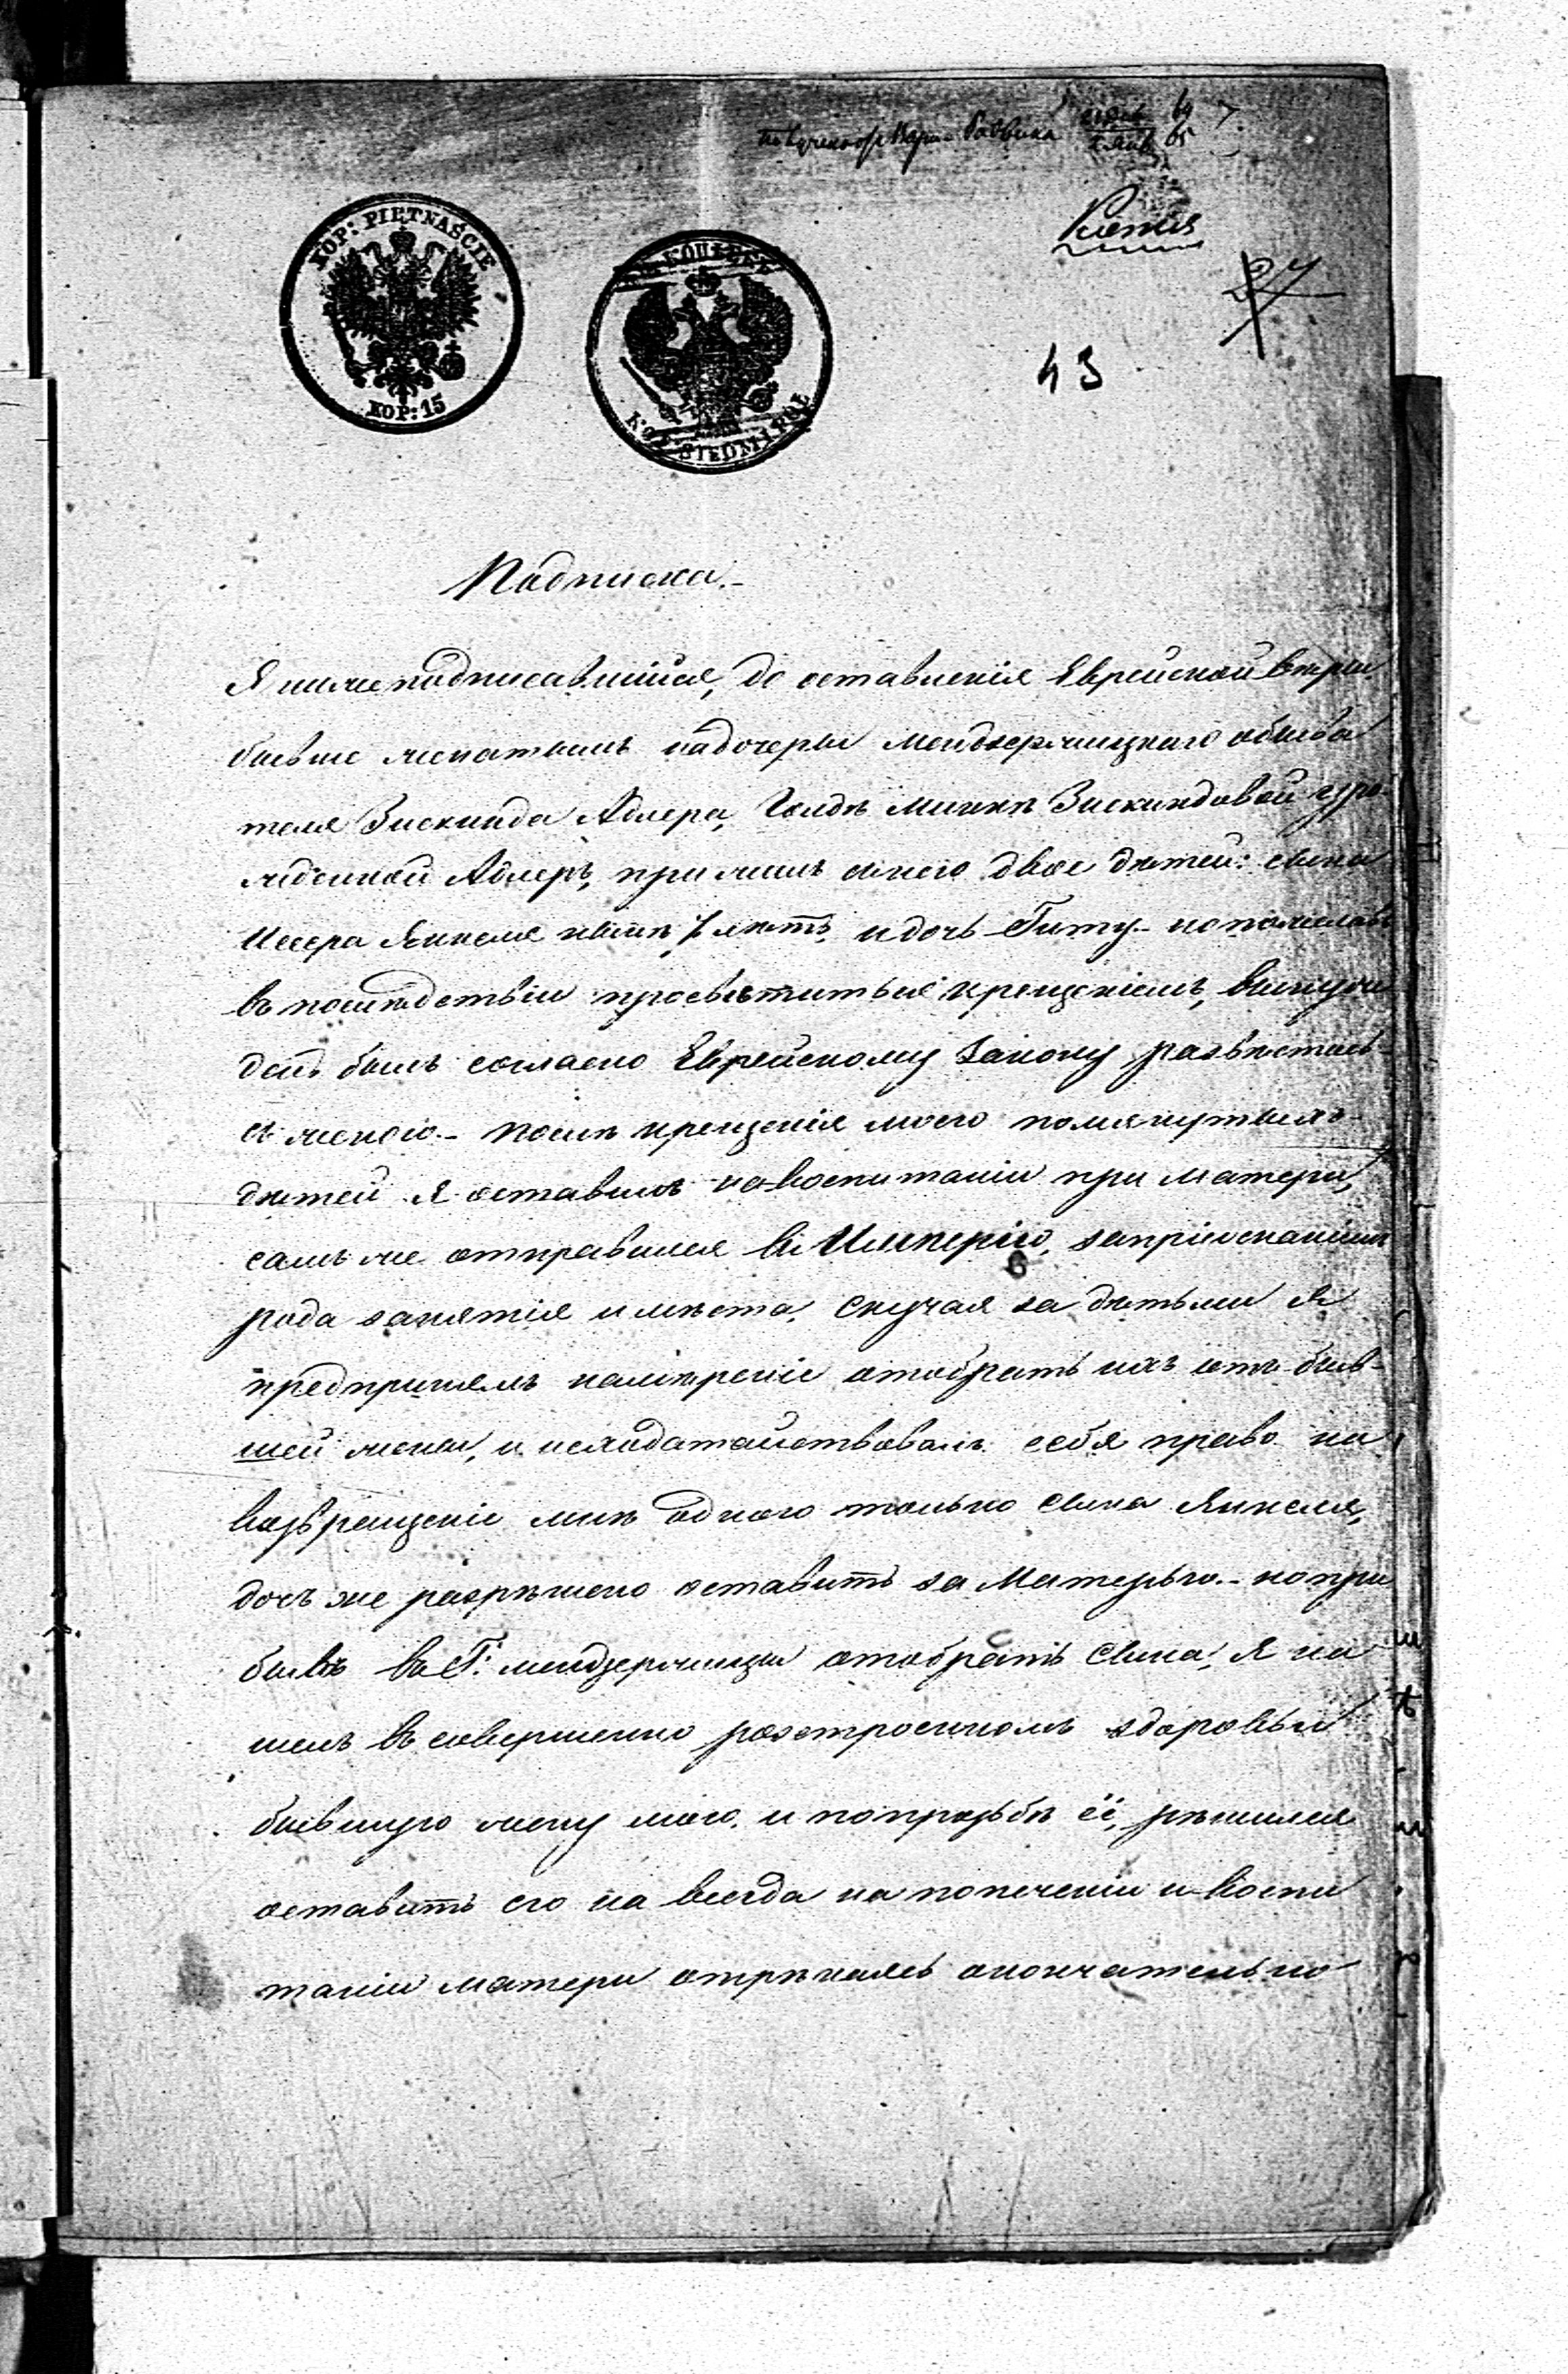 64
65
Копія
27
43
KOP: PIĘTNAŚCIE
KOP: 15
КОПѢЕКЪ
KOP. SIEDM I PÓŁ
Подписка.-
Я нижеподписавшійся, до оставленія Еврейской вѣры
бывше женатымъ на дочери Мендзержицкаго обыва
теля Зискинда Адлера, Гольдѣ Минкѣ Зискиндовой уро
жденной Адлеръ, прижилъ снею двое дѣтей: сына
Иссера Янкеля нынѣ 7 лѣтъ, и дочь Гиту.- но пожелавъ
въ послѣдствіи просвѣтиться крещеніемъ, вынуж
денъ былъ согласно Еврейскому Закону развѣстись
съ женою.- Послѣ крещенія моего помянутыхъ
дѣтей я оставилъ на воспитаніи при матери,
самъ же отправился въ Имперію, запріисканіемъ
рода занятія и мѣста. Скучая за дѣтьми я
предпринялъ намѣреніе отобрать ихъ отъ быв-
шей жены, и исходатайствовалъ себя право на
возвращеніе мнѣ одного только сына Янкеля,
дочь же разрѣшено оставить за Матерью.- но при
бывъ въ Г. Мендзержицы отобрать сына, я на
шелъ въ совершенно разстроенномъ здоровьи
бывшую жену мою, и попрозьбѣ её, рѣшился
оставить его на всегда на попеченіи и воспи
таніи матери отрѣкаясь окончательно